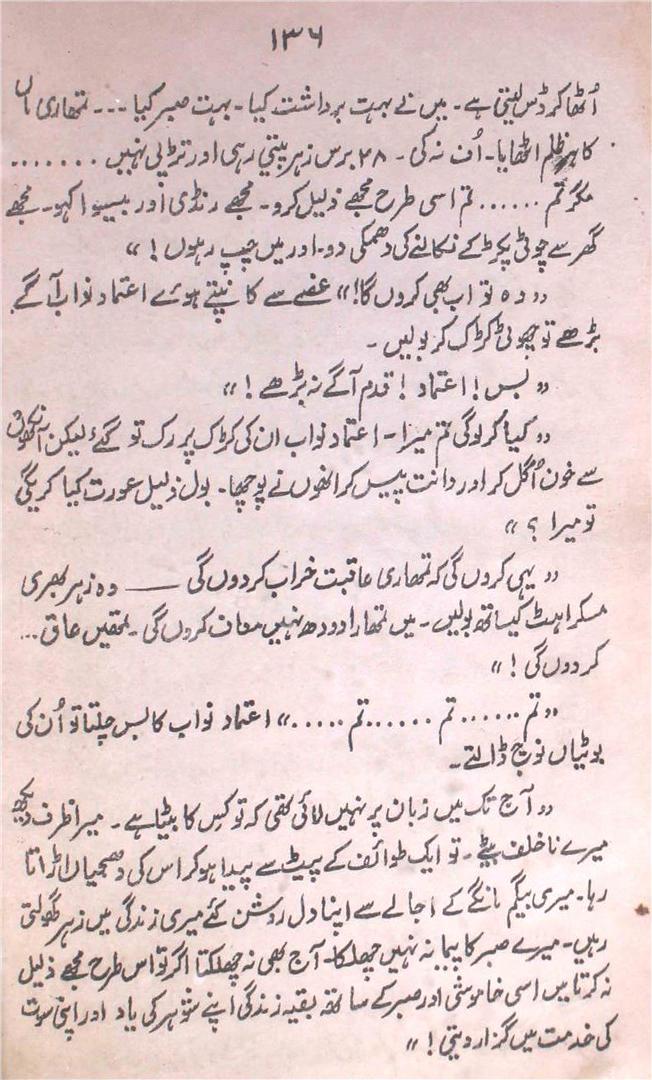 ۱۳۶
اُٹھا کر ڈس لیتی ہے۔ میں نے بہت برداشت کیا۔ بہت صبر کیا ۔۔۔ تمھاری ماں
کا ہر ظلم اٹھایا۔ اُف نہ کی۔ ۲۸ برس زہر پیتی رہی اور تڑپی نہیں .......
مگر تم ...... تم اسی طرح مجھے ذلیل کرو۔ مجھے رنڈی اور بیسوا کہو۔ مجھے
گھر سے چوٹی پکڑ کے نکالنے کی دھمکی دو۔ اور میں چپ رہوں! ״
״ وہ تو اب بھی کروں گا! ״ غصے سے کانپتے ہوئے اعتماد نواب آگے
بڑھے تو چھوٹی کڑک کر بولیں ۔
״ بس! اعتماد ! قدم آگے نہ بڑھے ! ״
״ کیا کر لوگی تم میرا ۔ اعتماد نواب ان کی کڑک پر رک تو گئے لیکن آنکھوں
سے خون اُگل کر اور دانت پیس کر انھوں نے پوچھا ۔ بول ذلیل عورت کیا کریگی
تو میرا ؟ ״
״ یہی کروں گی کہ تمھاری عاقبت خراب کر دوں گی —— وہ زہر بھری
مسکراہٹ کیساتھ بولیں ۔ میں تمھارا دودھ نہیں معاف کروں گی ۔ تمھیں عاق ...
کر دوں گی ! ״
״ تم ...... تم ...... تم ..... ״ اعتماد نواب کا بس چلتا تو اُن کی
بوٹیاں نوچ ڈالتے ۔
״ آج تک میں زبان پر نہیں لائی تھی کہ تو کس کا بیٹا ہے ۔ میرا ظرف دیکھ
میرے ناخلف بیٹے ۔ تو ایک طوائف کے پیٹ سے پیدا ہو کر اس کی دھجیاں اڑاتا
رہا ۔ میری بیگم مانگے کے اجالے سے اپنا دل روشن کئے میری زندگی میں زہر گھولتی
رہیں ۔ میرے صبر کا پیمانہ نہیں چھلکا ۔ آج بھی نہ چھلکتا اگر تو اس طرح مجھے ذلیل
نہ کرتا میں اسی خاموشی اور صبر کے ساتھ بقیہ زندگی اپنے شوہر کی یاد اور اپنی سوت
کی خدمت میں گزار دیتی ! ״